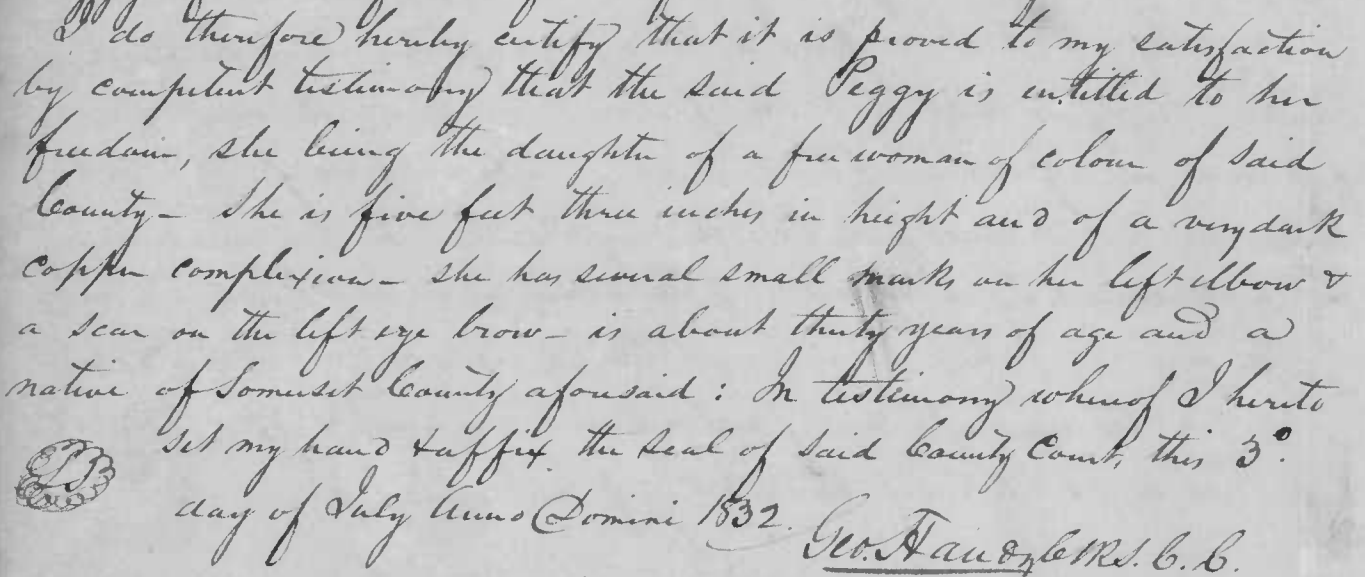 I do therefore hereby certify that it is proved to my satisfaction
by competent testimony that the said Peggy is entitled to her
freedom, she being the daughter of a free woman of colour of said
County – She is five feet three inches in height and of a very dark
copper complexion – she has several small marks on her left elbow &
a scar on the left eye brow – is about thirty years of age and a
native of Somerset County aforesaid : In testimony whereof I hereto
set my hand & affix the seal of said County Court, this 3º.
day of July Anno Domini 1832.
Geo. Handy Clk S. C. C.